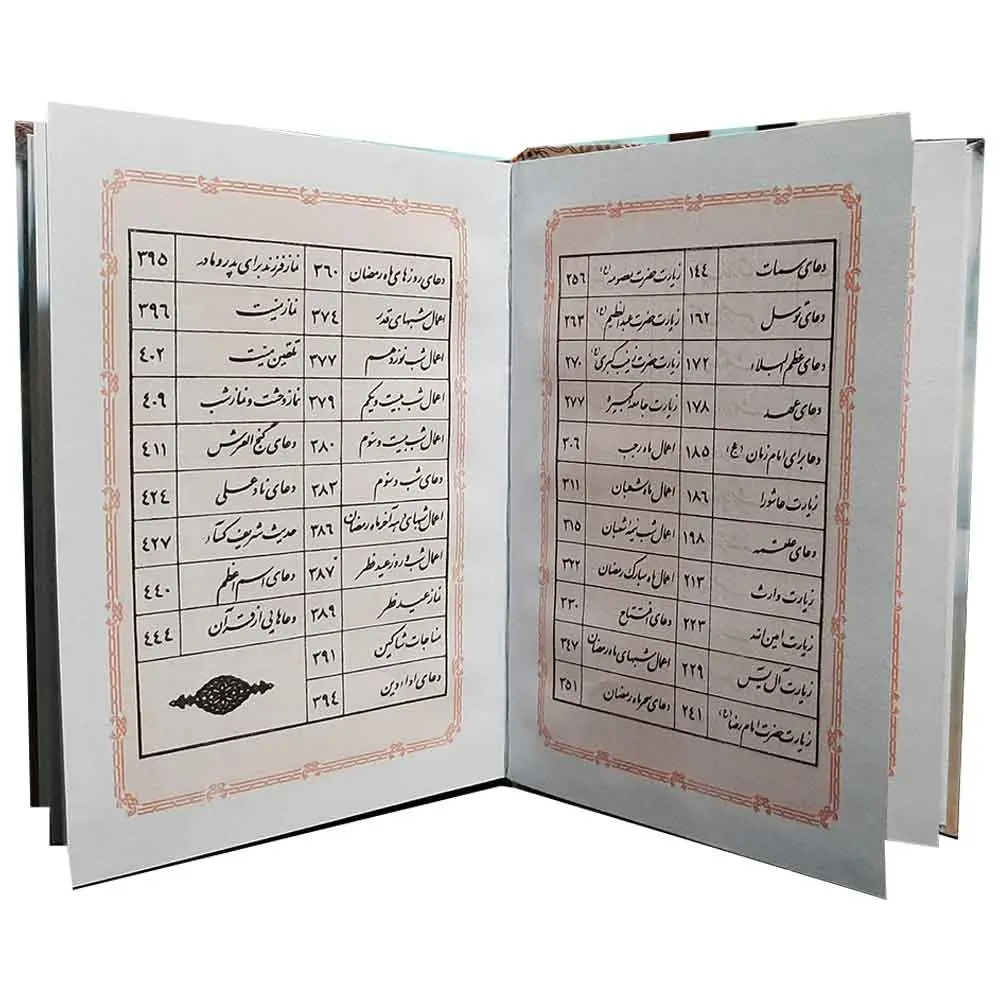 دعای سمات ۱۴۴
دعای توسل ۱۶۲
دعای عظم البلاء ۱۷۲
دعای عهد ۱۷۸
دعا برای امام زمان (عج) ۱۸۵
زیارت عاشورا ۱۸۶
دعای علقمه ۱۹۸
زیارت وارث ۲۱۳
زیارت امین الله ۲۲۳
زیارت آل یس ۲۲۹
زیارت حضرت امام رضا (ع) ۲۴۱
زیارت حضرت معصومه (ع) ۲۵۶
زیارت حضرت عبدالعظیم (ع) ۲۶۳
زیارت حضرت زینب کبری (ع) ۲۷۰
زیارت جامعه کبیره ۲۷۷
اعمال ماه رجب ۳۰۶
اعمال ماه شعبان ۳۱۱
اعمال شب نیمه شعبان ۳۱۵
اعمال ماه مبارک رمضان ۳۲۲
دعای افتتاح ۳۳۰
اعمال شبهای ماه رمضان ۳۴۷
دعای سحر ماه رمضان ۳۵۱
دعای روزهای ماه رمضان ۳۶۰
اعمال شبهای قدر ۳۷۴
اعمال شب نوزدهم ۳۷۷
اعمال شب بیست و یکم ۳۷۹
اعمال شب بیست و سوم ۳۸۰
دعای شب و سوم ۳۸۲
اعمال شبهای دهه آخر ماه رمضان ۳۸۶
اعمال شب و روز عید فطر ۳۸۷
نماز عید فطر ۳۸۹
مناجات شاکین ۳۹۱
دعای ادا دین ۳۹۴
نماز فرزند برای پدر و مادر ۳۹۵
نماز میت ۳۹۶
تلقین میت ۴۰۲
نماز وحشت و نماز شب ۴۰۹
دعای گنج العرش ۴۱۱
دعای ناد علی ۴۲۴
حدیث شریف کساء ۴۲۷
دعای اسم اعظم ۴۴۰
دعاهایی از قرآن ۴۴۴